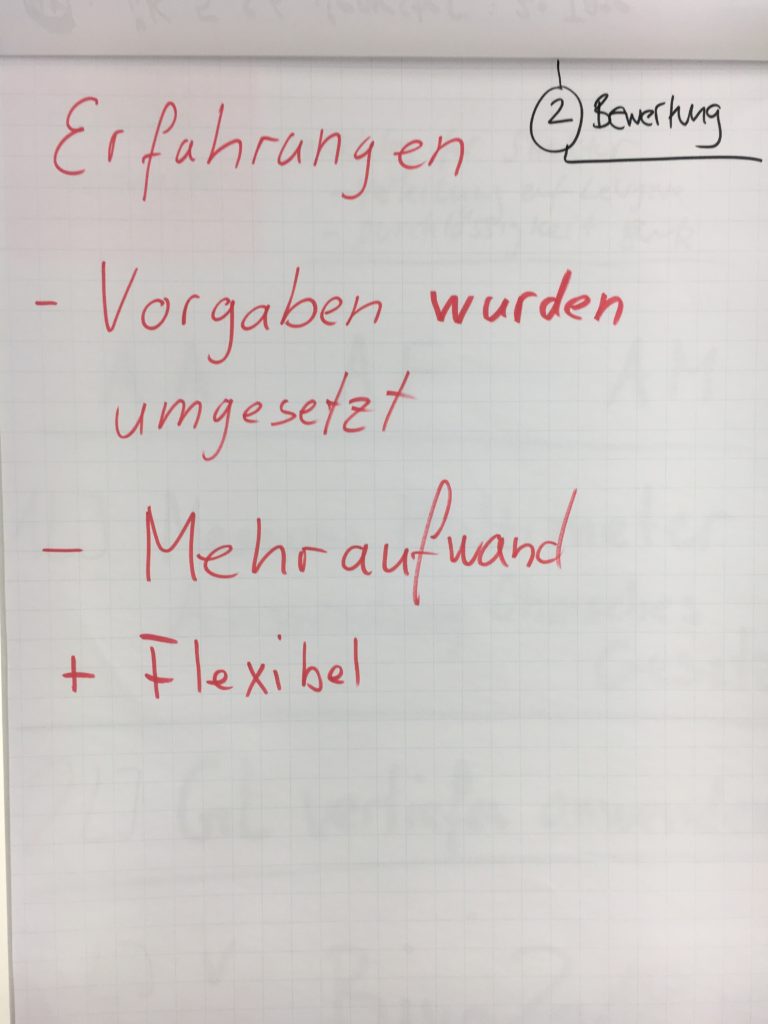 ② Bewertung
Erfahrungen
- Vorgaben wurden
umgesetzt
- Mehraufwand
+ Flexibel